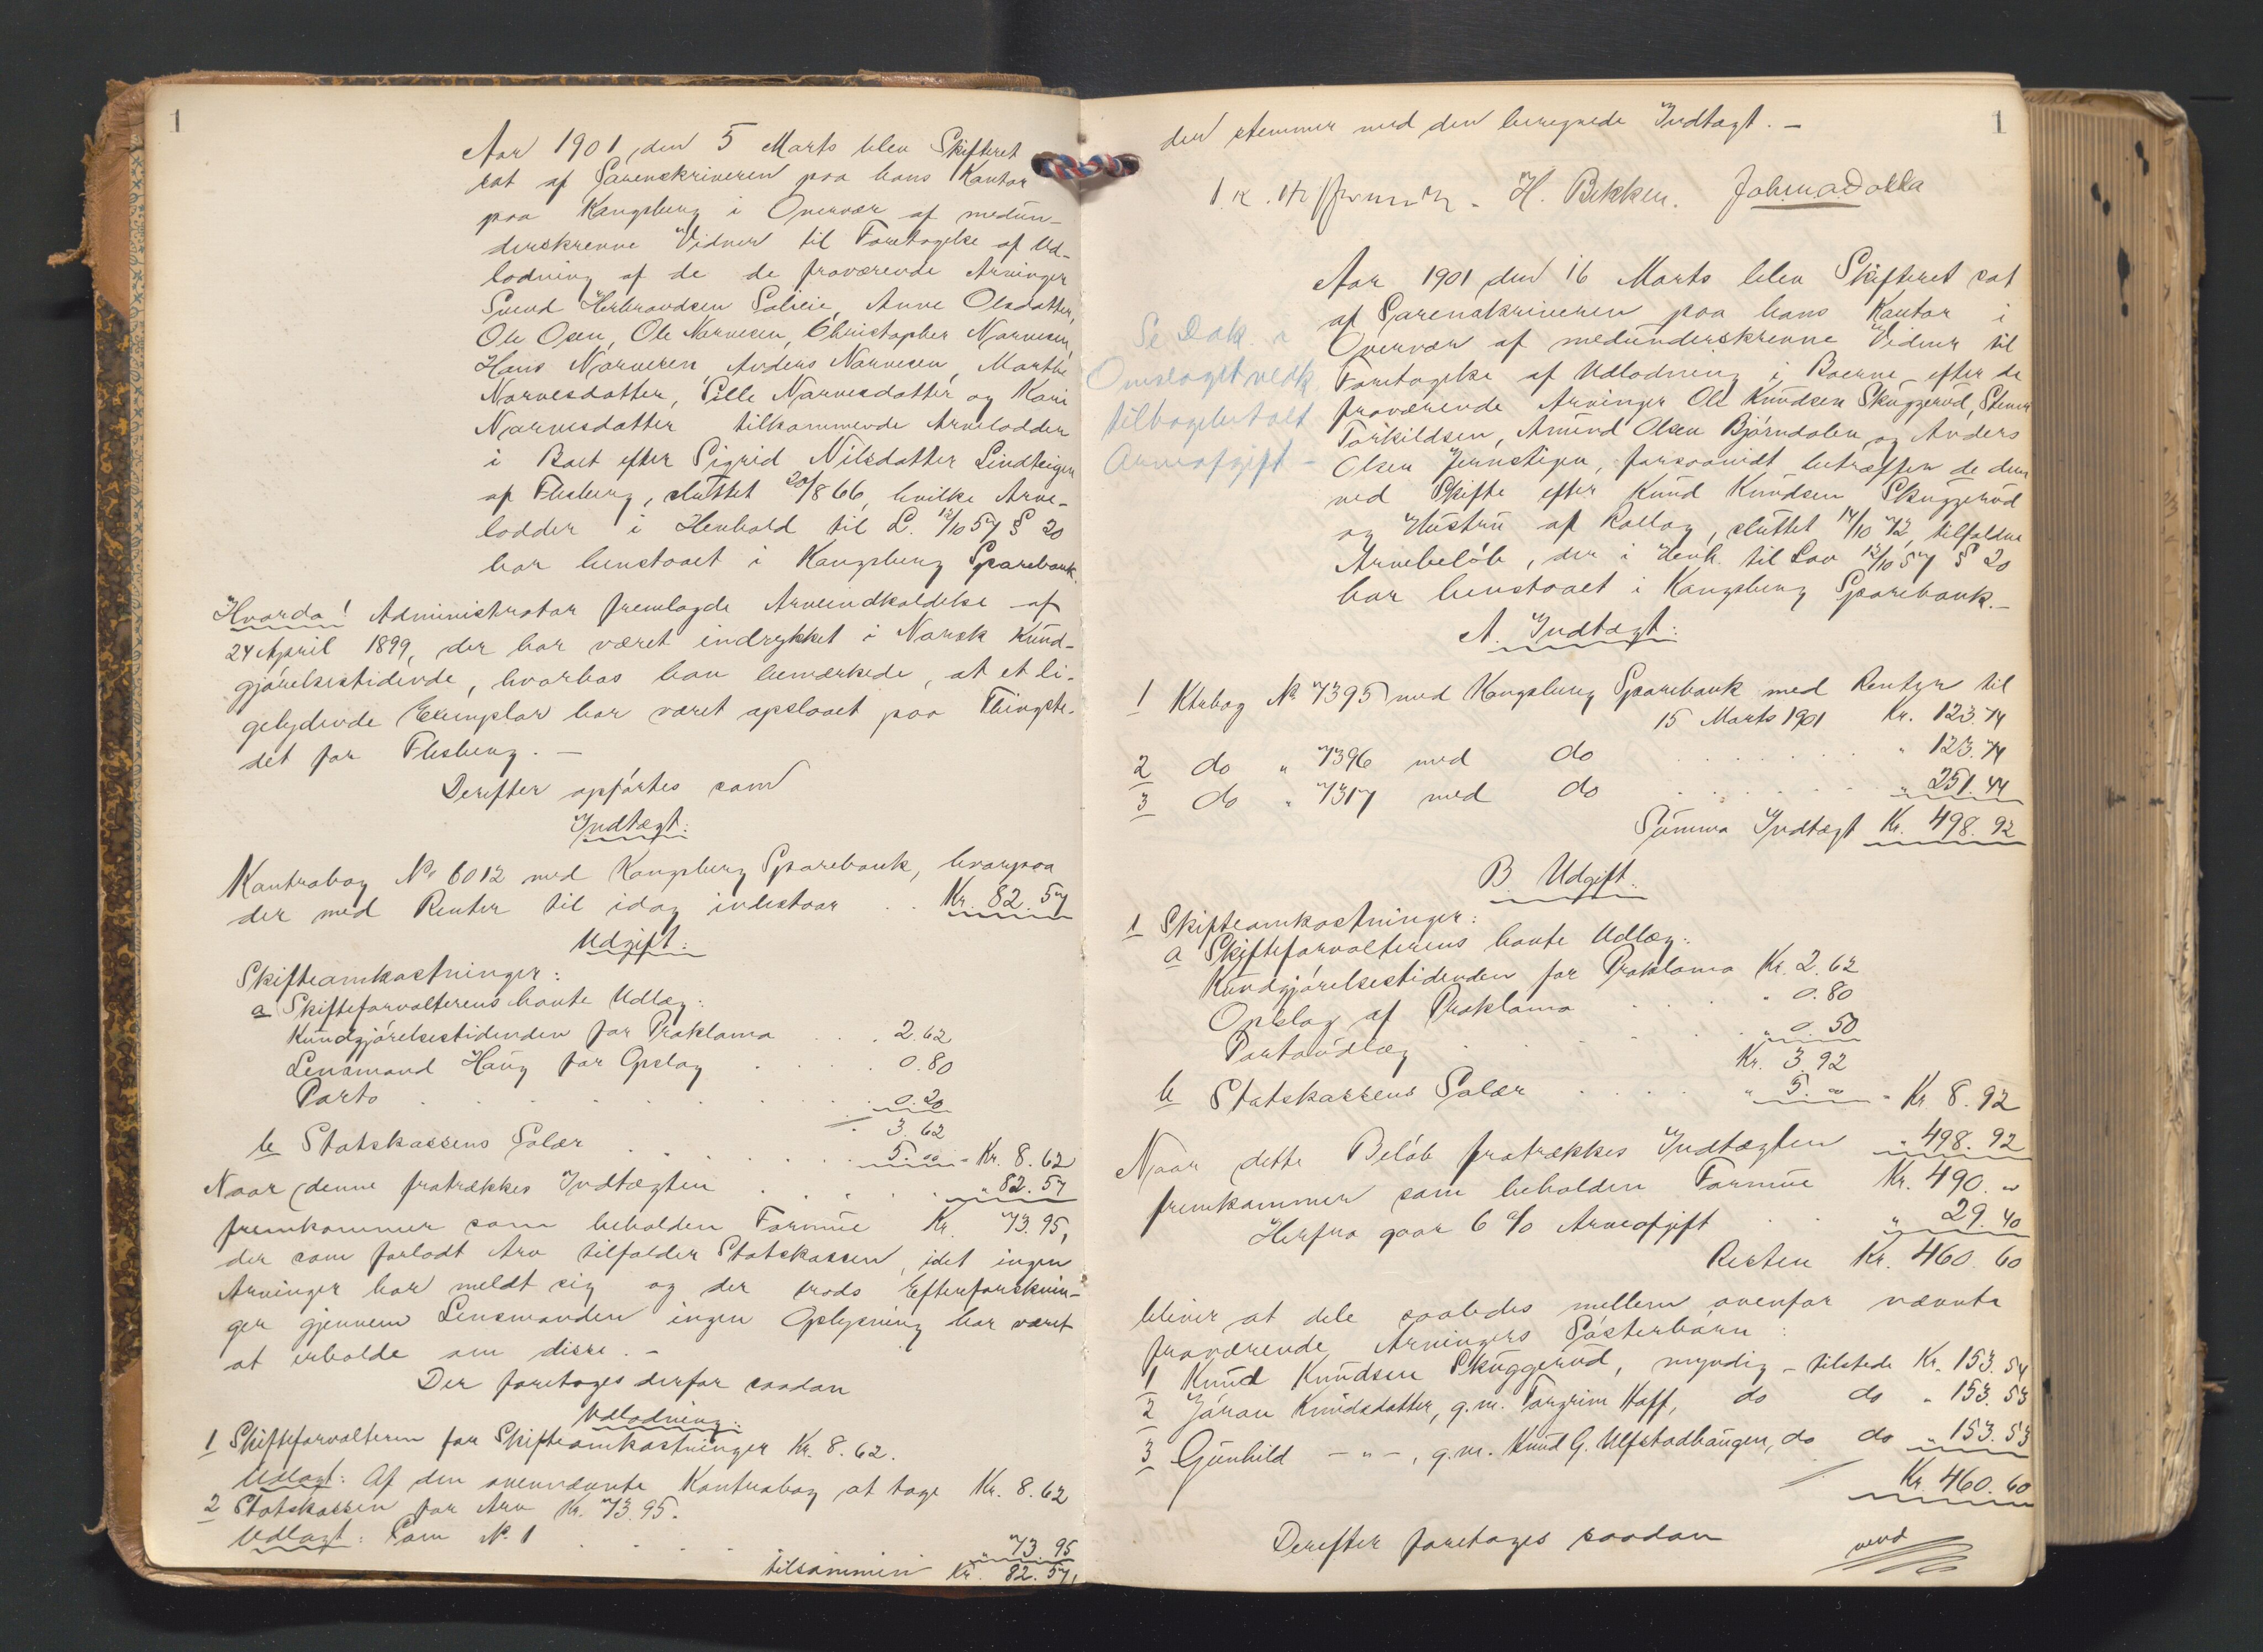 1
Aar 1901, den 5 Marts blev Skifteret
sat af Sorenskriveren paa hans Kontor
paa Kongsberg i Overvær af medun-
derskrevne Vidner til Foretagelse af Ud-
lodning af de de fraværende Arvinger
Svend Herbrandsen Solieie, Anne Olsdatter,
Ole Osen, Ole Narvesen, Christopher Narvesen,
Hans Narvesen, Anders Narvesen, Marthe
Narvesdatter, Sille Narvesdatter og Kari
Narvesdatter tilkommende Arvelodder
i Boet efter Sigrid Nilsdatter Lindteigen
af Flesberg, sluttet 20/8 66, hvilke Arve-
lodder i Henhold til L. 12/10 57 § 20
har henstaaet i Kongsberg Sparebank.
Hvorda! Administrator fremlagde Arveindkaldelse af
24 April 1899, der har været indrykket i Norsk Kund-
gjørelsestidende, hvorhos han bemærkede, at et li-
gelydende Exemplar har været opslaaet paa Thingste-
det for Flesberg. —
Derefter opførtes som
Indtægt:
Kontrabog No 6012 med Kongsberg Sparebank, hvorpaa
der med Renter til idag indestaar . . Kr. 82.57
Udgift:
Skifteomkostninger:
a Skifteforvalterens havte Udlæg:
Kundgjørelsestidenden for Proklama . . . 2.62
Lensmand Haug for Opslag . . . 0.80
Porto . . . 0.20
3.62
b Statskassens Salær . . . 5.00 - Kr. 8.62
Naar denne fratrækkes Indtægten . . . " 82.57
fremkommer som beholden Formue Kr. 73.95,
der som forlodt Arv tilfalder Statskassen, idet ingen
Arvinger har meldt sig og der trods Efterforsknin-
ger gjennem Lensmanden ingen Oplysning har været
at erholde om disse. —
Der foretoges derfor saadan
Udlodning:
1 Skifteforvalteren for Skifteomkostninger Kr. 8.62.
Udlagt: Af den ovennævnte Kontrabog at tage Kr. 8.62
2 Statskassen for Arv Kr. 73.95.
Udlagt: Som No 1 . . . " 73.95
tilsammen Kr. 82.57,
1
der stemmer med den beregnede Indtægt. —
H. Bekken. Johan Dokka
Aar 1901 den 16 Marts blev Skifteret sat
af Sorenskriveren paa hans Kontor i
Overvær af medunderskrevne Vidner til
Foretagelse af Udlodning i Boerne efter de
fraværende Arvinger Ole Knudsen Skuggerud, Stener
Torkildsen, Amund Olsen Bjørndalen og Anders
Olsen Jernstigen, forsaavidt betræffer de dem
ved Skifte efter Knud Knudsen Skuggerud
og Hustru af Rollag, sluttet 14/10 72, tilfaldne
Arvebeløb, der i Henh. til Lov 12/10 57 § 20
har henstaaet i Kongsberg Sparebank. —
Se Dok. i
Omslaget vedk.
tilbagebetalt
Arveafgift —
A. Indtægt:
1 Ktrbog No 7395 med Kongsberg Sparebank med Renter til
15 Marts 1901 Kr. 123.74
2 do " 7396 med do . . . " 123.74
3 do " 7317 med do . . . " 251.44
Summa Indtægt Kr. 498.92
B. Udgift:
1 Skifteomkostninger:
a Skifteforvalterens havte Udlæg:
Kundgjørelsestidenden for Proklama Kr. 2.62
Opslag af Proklama . . . " 0.80
Portoudlæg . . . " 0.50
Kr. 3.92
b Statskassens Salær . . . " 5.00 - Kr 8.92
Naar dette Beløb fratrækkes Indtægten " 498.92
fremkommer som beholden Formue Kr. 490. "
Herfra gaar 6 % Arveafgift . . " 29.40
Resten Kr. 460.60
bliver at dele saaledes mellem ovenfor nævnte
fraværende Arvingers Søsterbørn:
1 Knud Knudsen Skuggerud, myndig - tilstede Kr. 153.54
2 Jøran Knudsdatter, g.m. Torgrim Hoff, do do " 153.53
3 Gunhild — " —, g.m. Knud G. Ulfstadhaugen, do do " 153.53
Kr. 460.60
Derefter foretoges saadan
vend